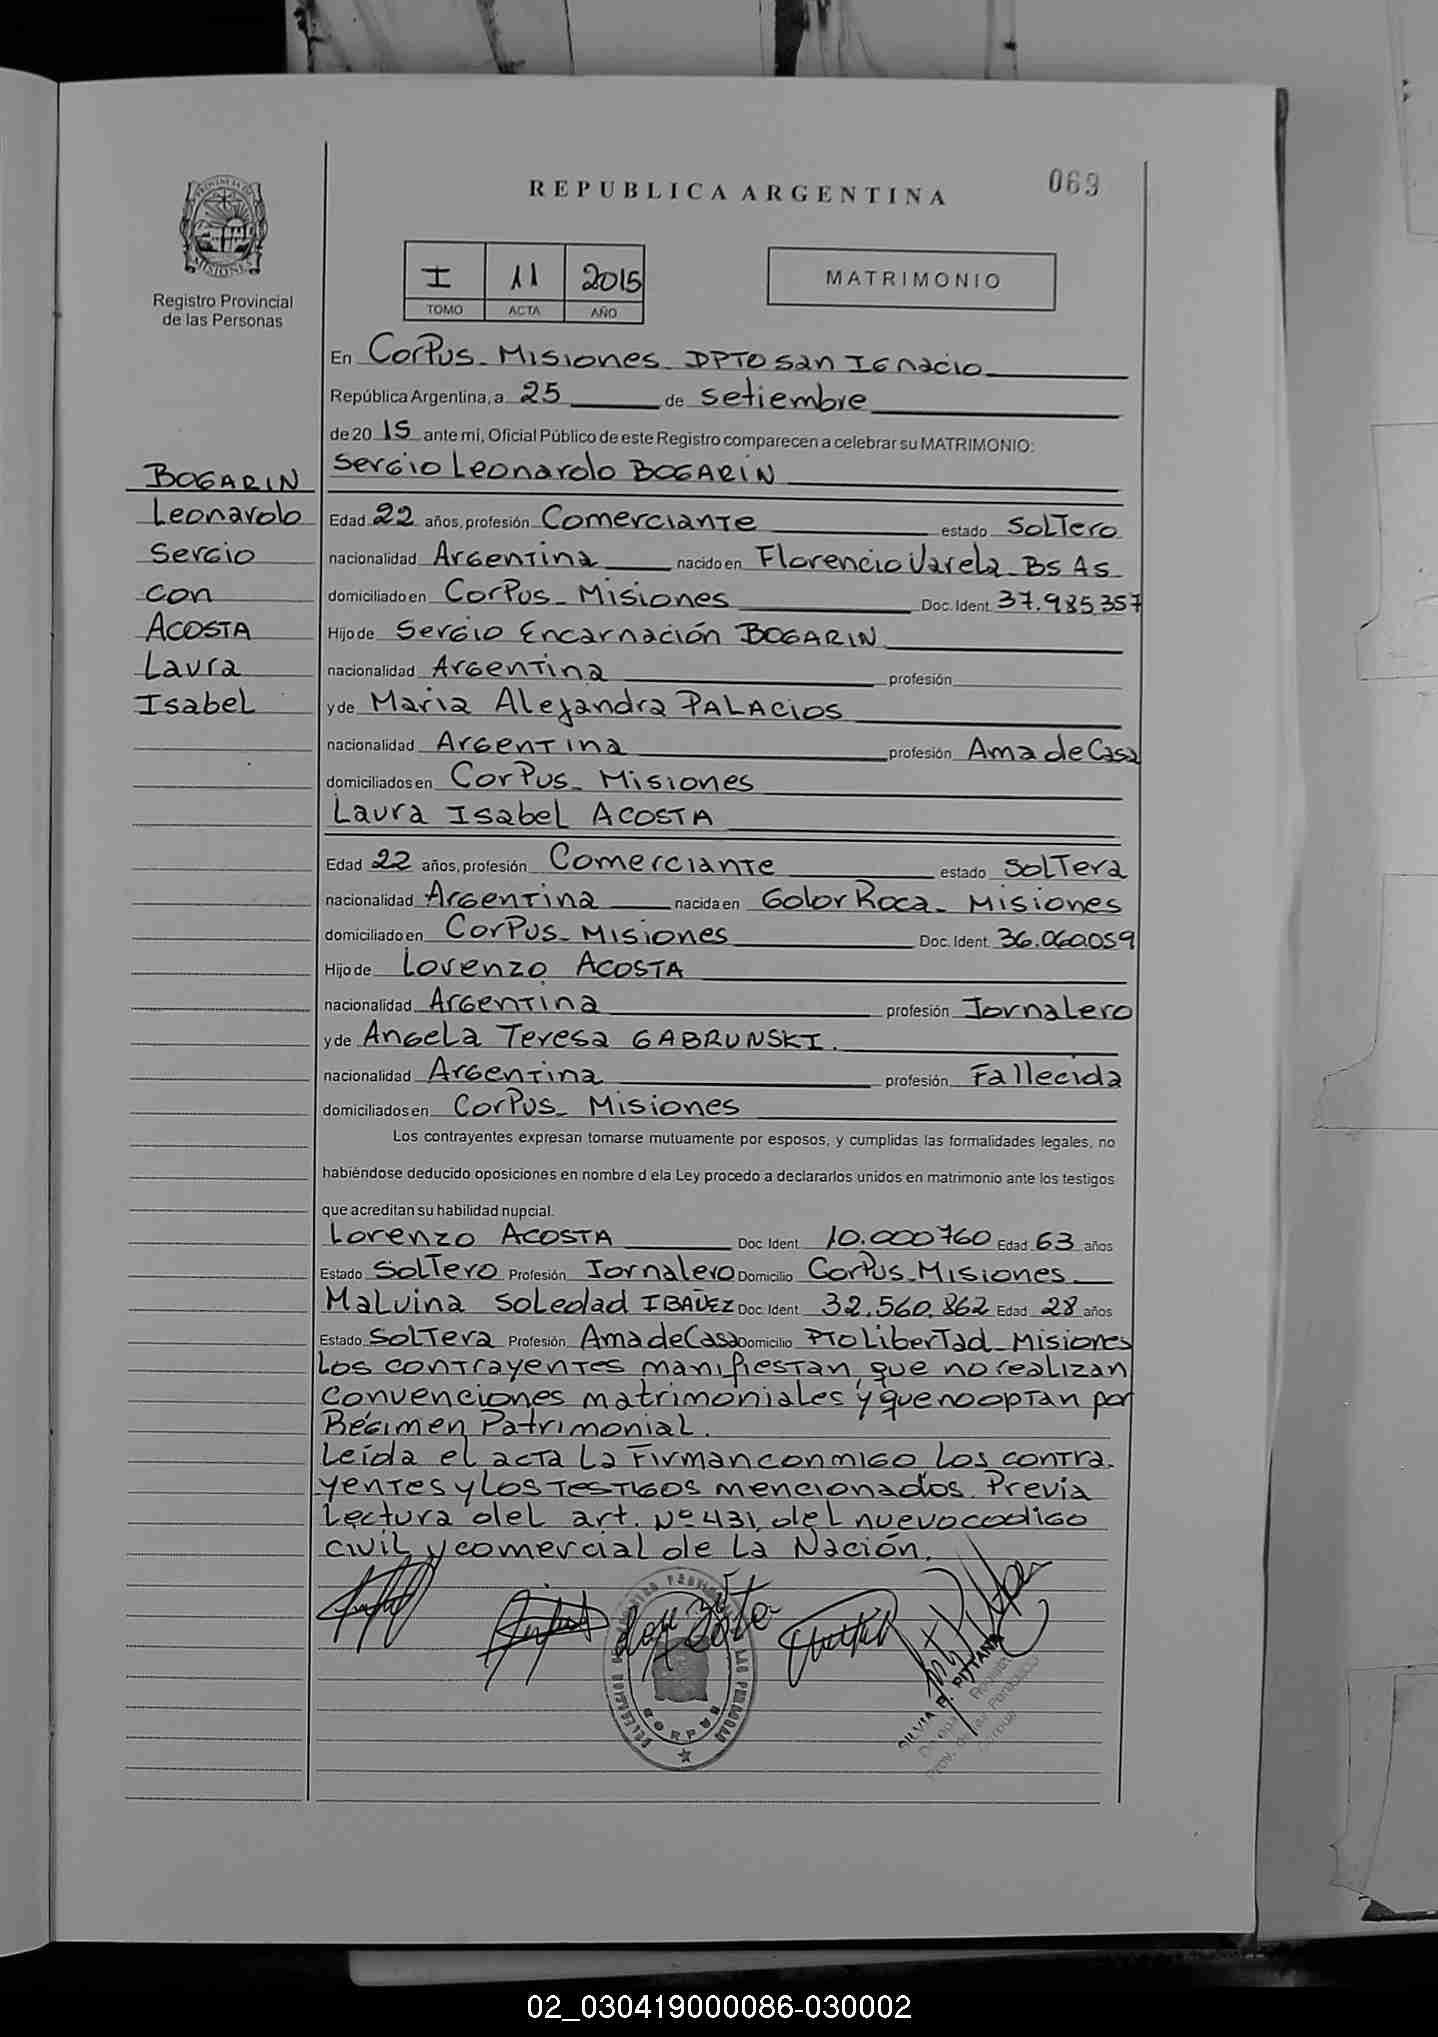 PROVINCIA DE
MISIONES
Registro Provincial
de las Personas
REPUBLICA ARGENTINA
069
I 11 2015
TOMO ACTA AÑO
MATRIMONIO
En Corpus - Misiones DPTO San Ignacio
República Argentina, a 25 de Setiembre
de 20 15 ante mi, Oficial Público de este Registro comparecen a celebrar su MATRIMONIO:
BOGARIN
Leonardo
Sergio
con
ACOSTA
Laura
Isabel
Sergio Leonardo BOGARIN
Edad 22 años, profesión Comerciante estado Soltero
nacionalidad Argentina nacido en Florencio Varela - Bs As
domiciliado en Corpus - Misiones Doc. Ident. 37.985.357
Hijo de Sergio Encarnación BOGARIN
nacionalidad Argentina profesión
y de Maria Alejandra PALACIOS
nacionalidad Argentina profesión Ama de Casa
domiciliados en Corpus - Misiones
Laura Isabel ACOSTA
Edad 22 años, profesión Comerciante estado Soltera
nacionalidad Argentina nacida en Golor Roca - Misiones
domiciliado en Corpus - Misiones Doc. Ident. 36.060.059
Hijo de Lorenzo ACOSTA
nacionalidad Argentina profesión Jornalero
y de Angela Teresa GABRUNSKI.
nacionalidad Argentina profesión Fallecida
domiciliados en Corpus - Misiones
Los contrayentes expresan tomarse mutuamente por esposos, y cumplidas las formalidades legales, no
habiéndose deducido oposiciones en nombre d ela Ley procedo a declararlos unidos en matrimonio ante los testigos
que acreditan su habilidad nupcial.
Lorenzo ACOSTA Doc. Ident. 10.000760 Edad 63 años
Estado Soltero Profesión Jornalero Domicilio Corpus - Misiones
Malvina Soledad IBAÑEZ Doc. Ident. 32.560.862 Edad 28 años
Estado Soltera Profesión Ama de Casa Domicilio Pto Libertad - Misiones
Los contrayentes manifiestan, que no realizan
convenciones matrimoniales y que no optan por
Régimen Patrimonial.
Leída el acta la Firman conmigo los contra-
yentes y los testigos mencionados. Previa
Lectura del art. Nº 431, del nuevo codigo
civil y comercial de la Nación.
CORPUS
SILVIA R. PITTANA
02_030419000086-030002